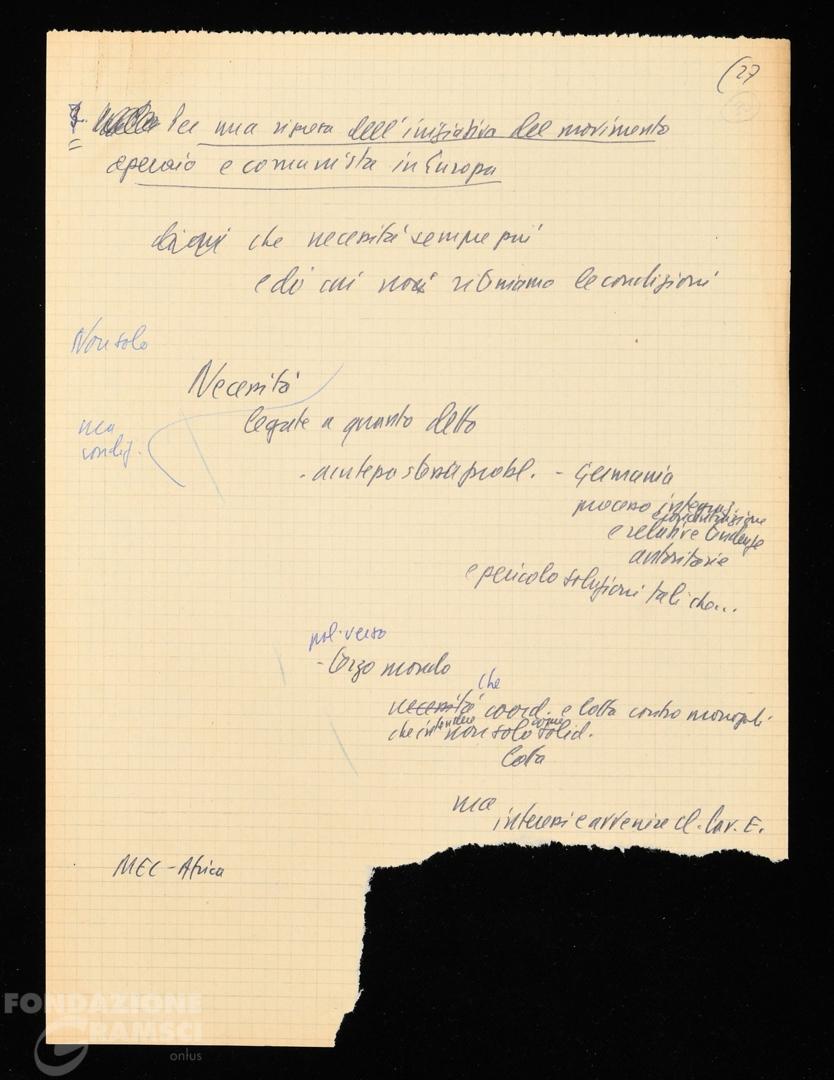 (27
Per una ripresa dell'iniziativa del movimento
operaio e comunista in Europa
di cui che necessità sempre più
e di cui noi riteniamo le condizioni
Non solo
Necessità
ma
condiz.
legate a quanto detto
. ai nostri probl. - Germania
processo integraz.
e relative tendenze
autoritarie
e pericolo soluzioni tali che...
pol. verso
- terzo mondo
che
necessità coord. e lotta contro monopoli
che intendere non solo come solid.
lotta
ma
interessi e avvenire cl. lav. E.
MEC - Africa
FONDAZIONE
GRAMSCI
onlus